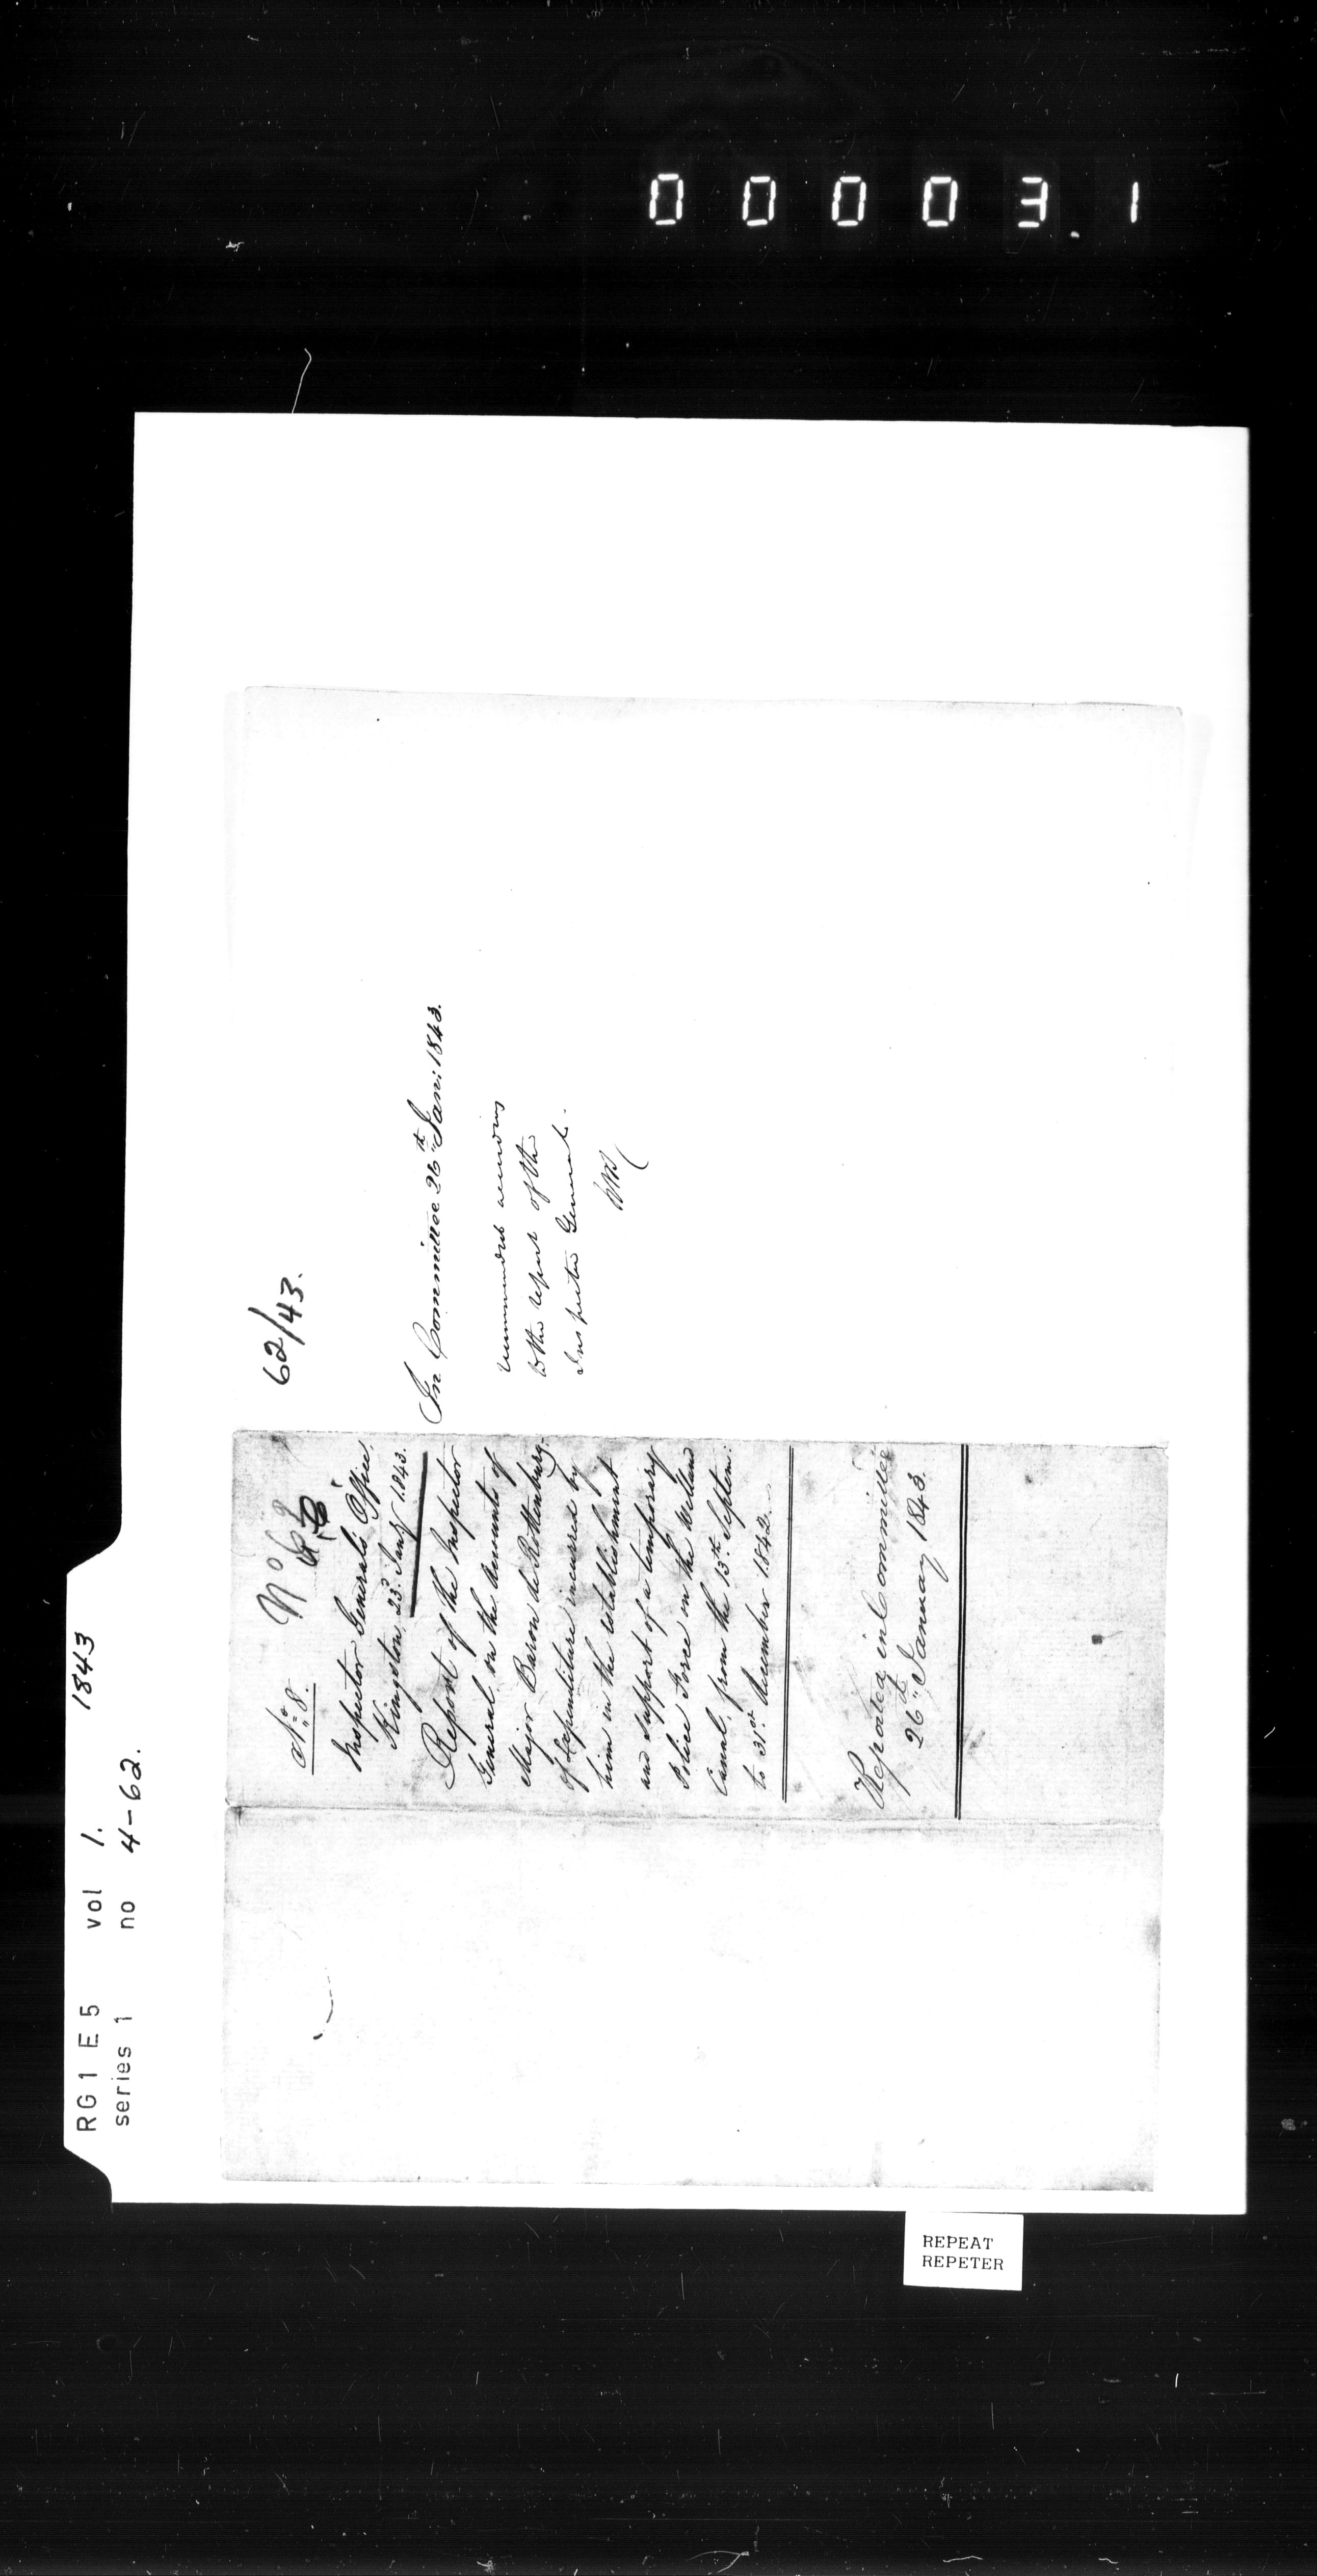 000031
RG1 E5 vol 1. 1843
series 1 no 4-62.
No. 8. No 62
Inspector General's Office,
Kingston, 23d. Jany 1843.
Report of the Inspector
General on the Accounts of
Major Baron de Rottenburg,
of Expenditure incurred by
him in the establishment
and support of a temporary
Police Force on the Welland
Canal, from the 13th. Septem:
to 31st. December 1842.
Reported in Committee
26th January 1843.
62/43.
In Committee 26th Jan: 1843.
to the report of the
Inspector General.
REPEAT
REPETER